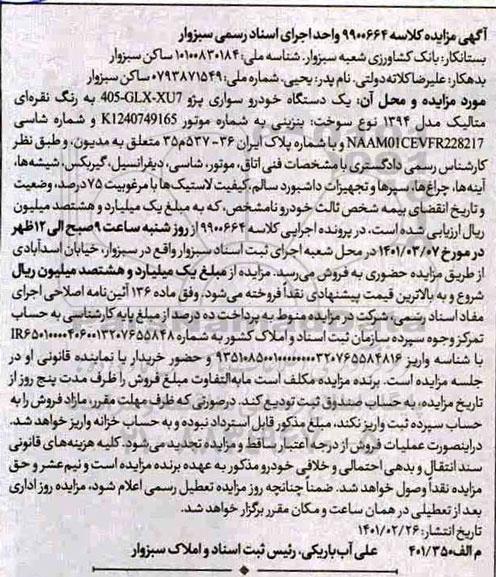 آگهی مزایده کلاسه ۹۹۰۰۶۶۴ واحد اجرای اسناد رسمی سبزوار
بستانکار: بانک کشاورزی شعبه سبزوار. شناسه ملی: ۱۰۱۰۰۸۳۰۱۸۴ ساکن سبزوار
بدهکار: علیرضا کلاته دولتی. نام پدر: یحیی. شماره ملی: ۰۷۹۳۸۷۱۵۴۹ ساکن سبزوار
مورد مزایده و محل آن: یک دستگاه خودرو سواری پژو 405-GLX-XU7 به رنگ نقره‌ای
متالیک مدل ۱۳۹۴ نوع سوخت: بنزینی به شماره موتور K1240749165 و شماره شاسی
NAAM01CEVFR228217 و با شماره پلاک ایران ۳۶-۵۳۷م۳۵ متعلق به مدیون، و طبق نظر
کارشناس رسمی دادگستری با مشخصات فنی اتاق، موتور، شاسی، دیفرانسیل، گیربکس، شیشه‌ها،
آینه‌ها، چراغ‌ها، سپرها و تجهیزات داشبورد سالم، کیفیت لاستیک‌ها با مرغوبیت ۷۵ درصد، وضعیت
و تاریخ انقضای بیمه شخص ثالث خودرو نامشخص، که به مبلغ یک میلیارد و هشتصد میلیون
ریال ارزیابی شده است، در پرونده اجرایی کلاسه ۹۹۰۰۶۶۴ از روز شنبه ساعت ۹ صبح الی ۱۲ ظهر
در مورخ ۱۴۰۱/۰۳/۰۷ در محل شعبه اجرای ثبت اسناد سبزوار واقع در سبزوار، خیابان اسدآبادی
از طریق مزایده حضوری به فروش می‌رسد. مزایده از مبلغ یک میلیارد و هشتصد میلیون ریال
شروع و به بالاترین قیمت پیشنهادی نقداً فروخته می‌شود. وفق ماده ۱۳۶ آئین‌نامه اصلاحی اجرای
مفاد اسناد رسمی، شرکت در مزایده منوط به پرداخت ده درصد از مبلغ پایه کارشناسی به حساب
تمرکز وجوه سپرده سازمان ثبت اسناد و املاک کشور به شماره
با شناسه واریز و حضور خریدار یا نماینده قانونی او در
جلسه مزایده است. برنده مزایده مکلف است مابه‌التفاوت مبلغ فروش را ظرف مدت پنج روز از
تاریخ مزایده، به حساب صندوق ثبت تودیع کند. درصورتی‌که ظرف مهلت مقرر، مازاد فروش را به
حساب سپرده ثبت واریز نکند، مبلغ مذکور قابل استرداد نبوده و به حساب خزانه واریز خواهد شد.
دراینصورت عملیات فروش از درجه اعتبار ساقط و مزایده تجدید می‌شود. کلیه هزینه‌های قانونی
سند انتقال و بدهی احتمالی و خلافی خودرو مذکور به عهده برنده مزایده است و نیم‌عشر و حق
مزایده نقداً وصول خواهد شد. ضمناً چنانچه روز مزایده تعطیل رسمی اعلام شود، مزایده روز اداری
بعد از تعطیلی در همان ساعت و مکان مقرر برگزار خواهد شد.
تاریخ انتشار: ۱۴۰۱/۰۲/۲۶
م الف ۴۰۱/۳۵۰ علی آب‌باریکی، رئیس ثبت اسناد و املاک سبزوار